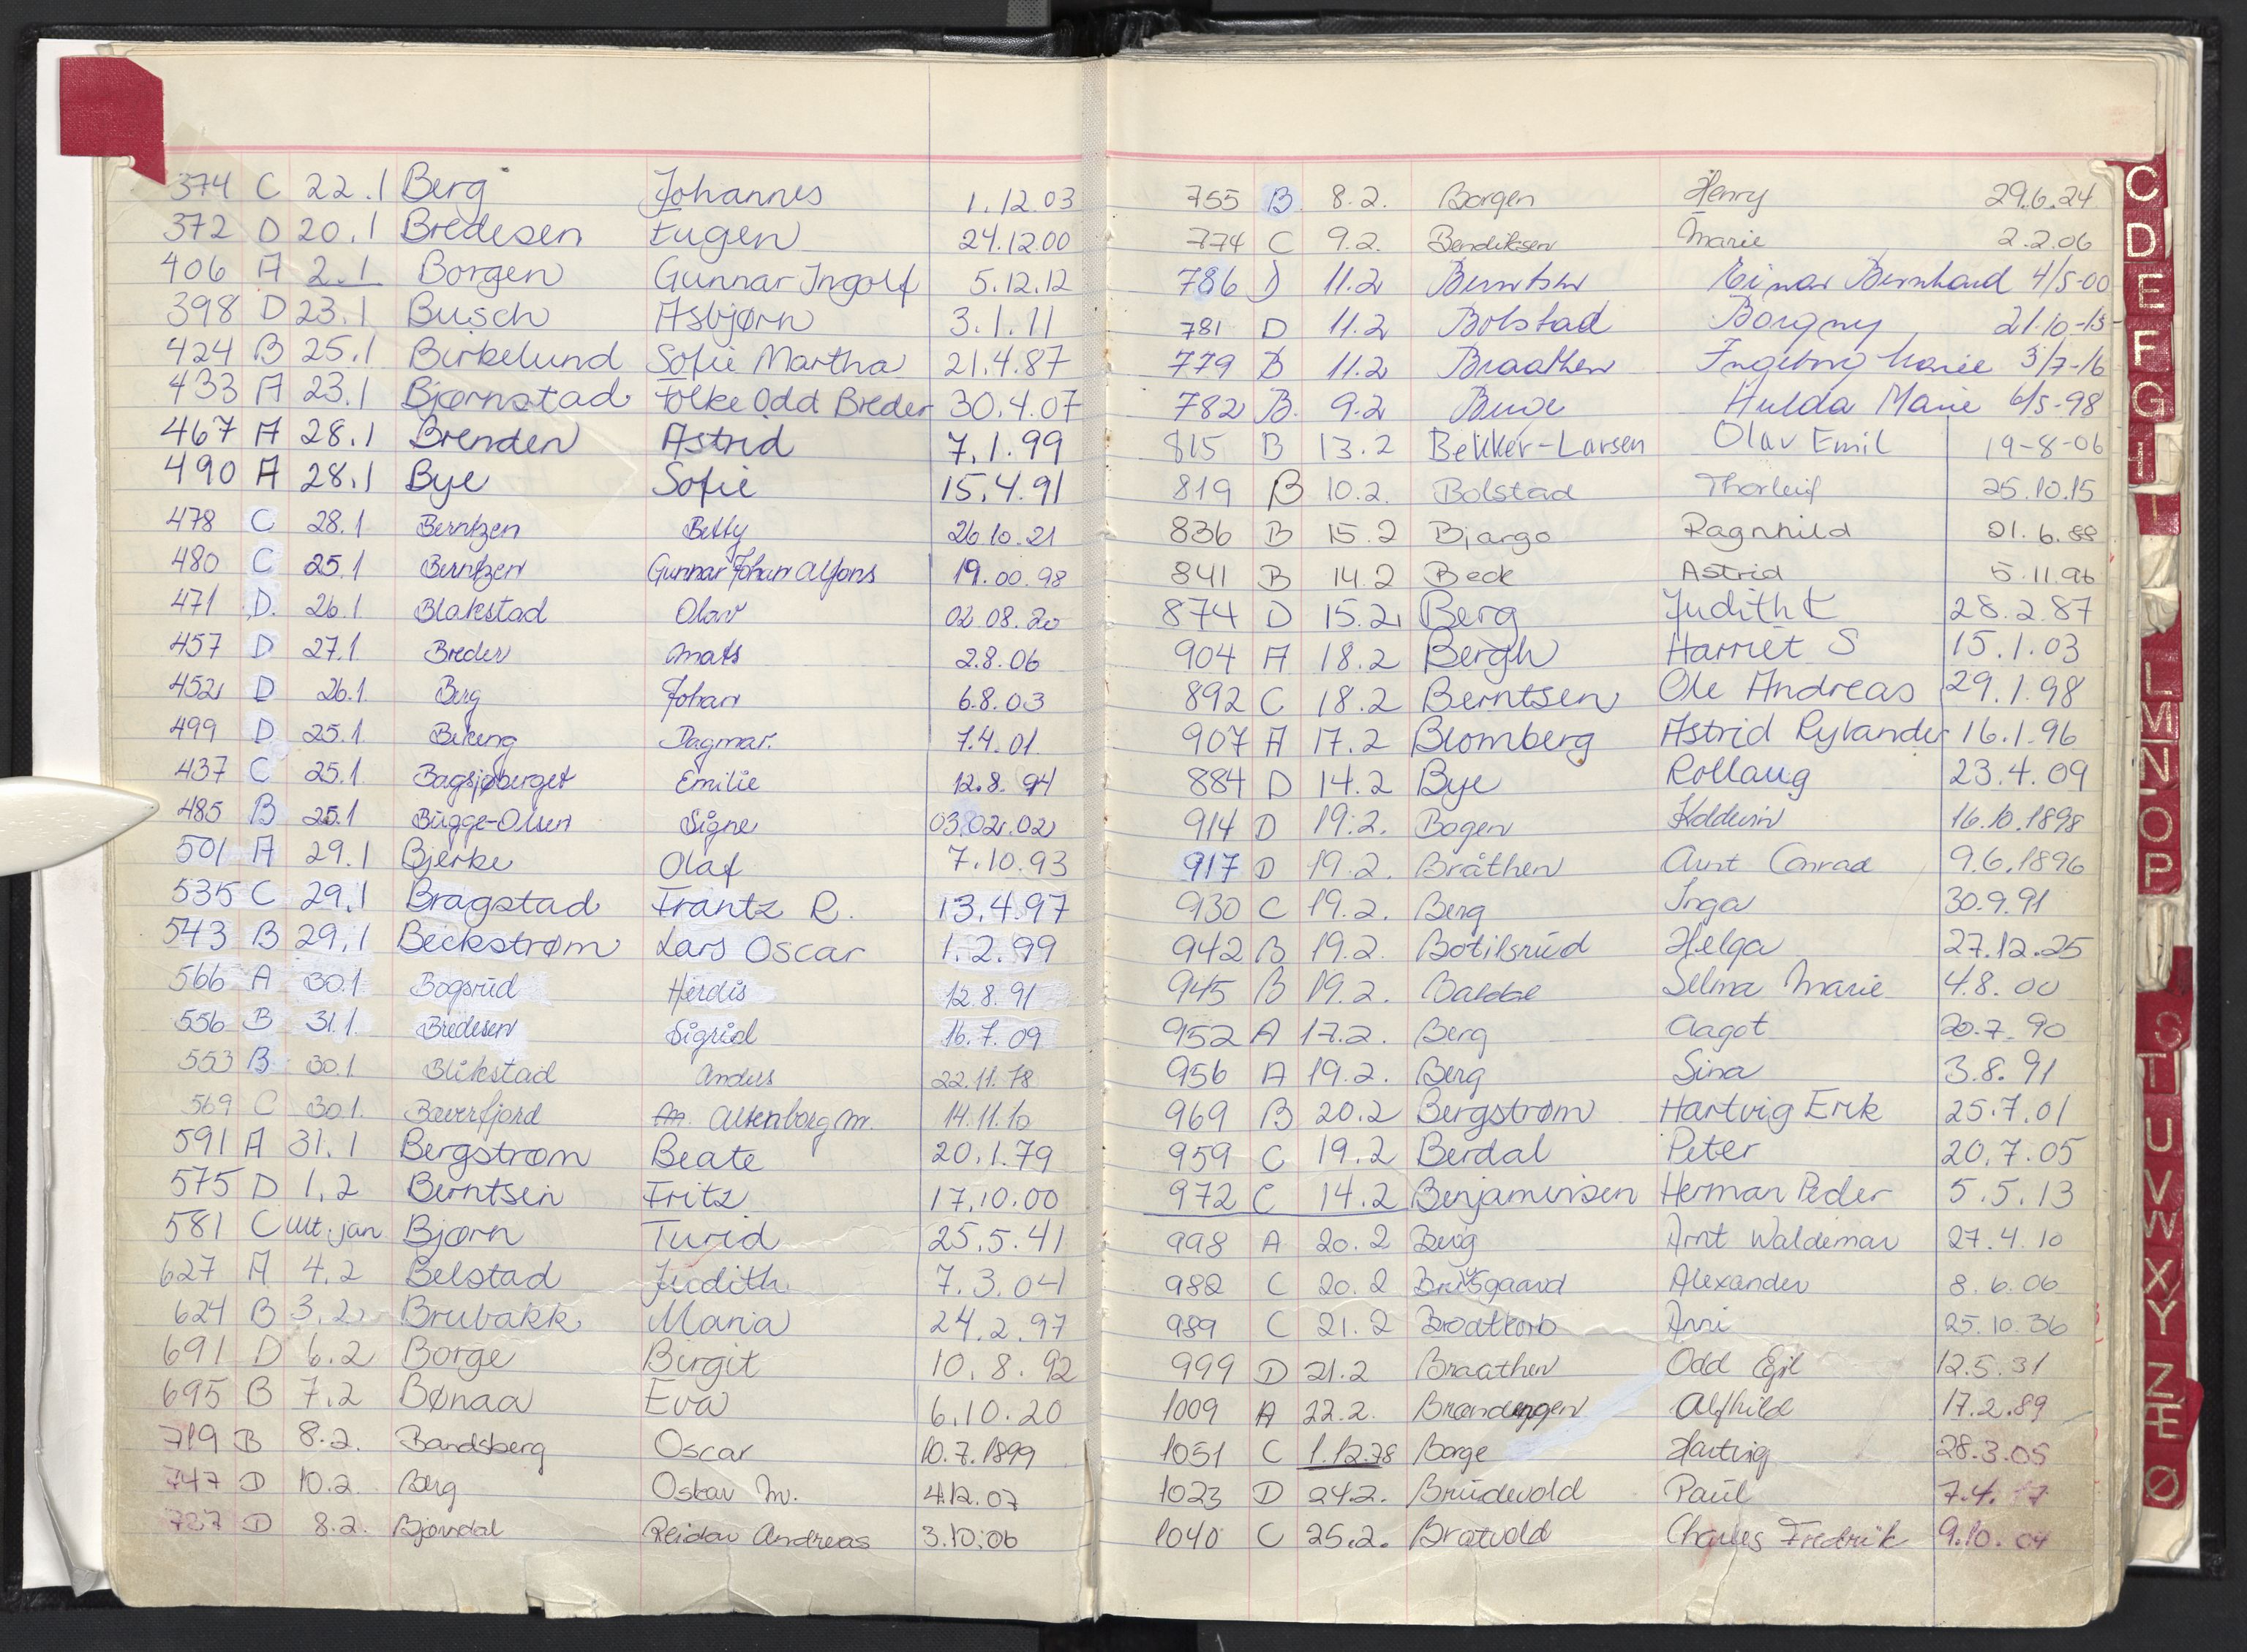 374 C 22.1 Berg Johannes 1.12.03
372 D 20.1 Bredesen Eugen 24.12.00
406 A 2.1 Borgen Gunnar Ingolf 5.12.12
398 D 23.1 Busch Asbjørn 3.1.11
424 B 25.1 Birkelund Sofie Martha 21.4.87
433 A 23.1 Bjørnstad Folke Odd Breder 30.4.07
467 A 28.1 Brenden Astrid 7.1.99
490 A 28.1 Bye Sofie 15.4.91
478 C 28.1 Berntzen Betty 26.10.21
480 C 25.1 Berntzen Gunnar Johan Alfons 19.00.98
471 D. 26.1 Blakstad Olav 02.08.20
457 D 27.1 Breder Mats 2.8.06
452 D 26.1. Berg Johan 6.8.03
499 D 25.1. Bekeng Dagmar. 7.4.01
437 C 25.1. Bagsjøberget Emilie 12.8.94
485 B 25.1 Bugge-Olsen Signe 03.02.02
501 A 29.1 Bjerke Olaf 7.10.93
535 C 29.1 Bragstad Frantz R. 13.4.97
543 B 29.1 Beckstrøm Lars Oscar 1.2.99
566 A 30.1 Bogsrud Herdis 12.8.91
556 B 31.1. Bredesen Sigrid 16.7.09
553 B 30.1 Blikstad Anders 22.11.78
569 C 30.1. Bæverfjord Altenborg M. 14.11.10
591 A 31.1 Bergstrøm Beate 20.1.79
575 D 1.2 Berntsen Fritz 17.10.00
581 C ult. jan Bjørn Turid 25.5.41
627 A 4.2 Belstad Judith 7.3.04
624 B 3.2 Brubakk Maria 24.2.97
691 D 6.2 Borge Birgit 10.8.92
695 B 7.2 Bønaa Eva 6.10.20
719 B 8.2. Bandsberg Oscar 10.7.1899
747 D 10.2 Berg Oskar M. 4.12.07
737 D 8.2. Bjørndal Reidar Andreas 3.10.06
755 B. 8.2. Borgen Henry 29.6.24
774 C 9.2. Bendiksen Marie 2.2.06
786 D 11.2 Berntsen Einar Bernhard 4/5-00
781 D 11.2 Bolstad Borgny 21.10-15-
779 B 11.2 Braathen Ingeborg Marie 3/7-16
782 B. 9.2 Hulda Marie 6/5-98
815 B 13.2 Bekker-Larsen Olav Emil 19-8-06
819 B 10.2. Bolstad Thorleif 25.10.15
836 B 15.2 Bjargo Ragnhild 21.6.88
841 B 14.2 Beck Astrid 5.11.96
874 D 15.2 Berg Judith E 28.2.87
904 A 18.2 Bergh Harriet S 15.1.03
892 C 18.2 Berntsen Ole Andreas 29.1.98
907 A 17.2 Blomberg Astrid Rylander 16.1.96
884 D 14.2 Bye Rollaug 23.4.09
914 D 19.2. Bogen Koldevin 16.10.1898
917 D 19.2. Bråthen Arnt Conrad 9.6.1896
930 C 19.2. Berg Inga 30.9.91
942 B 19.2. Botilsrud Helga 27.12.25
945 B 19.2. Selma Marie 4.8.00
952 A 17.2. Berg Aagot 20.7.90
956 A 19.2. Berg Sina 3.8.91
969 B 20.2 Bergstrøm Hartvig Erik 25.7.01
959 C 19.2 Berdal Peter 20.7.05
972 C 14.2 Benjaminsen Herman Peder 5.5.13
998 A 20.2 Berg Arnt Waldemar 27.4.10
982 C 20.2 Alexander 8.6.06
989 C 21.2 Brodtkorb Arni 25.10.36
999 D 21.2 Braathen Odd Egil 12.5.31
1009 A 22.2. Brændengen Alfhild 17.2.89
1051 C 1.12.78 Borge Hartvig 28.3.05
1023 D 24.2. Brudevold Paul 7.4.17
1040 C 25.2. Bratvold Charles Fredrik 9.10.04
C
D
E
F
G
H
I
L
M
N
O
P
S
T
U
V
W
X
Y
Z
Æ
Ø